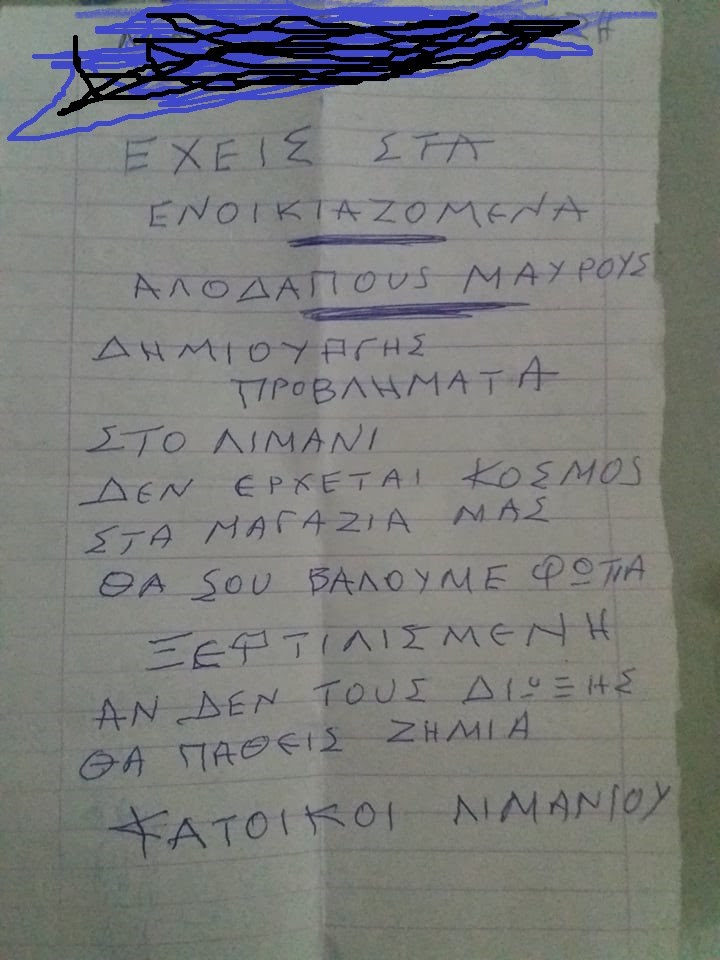 ΕΧΕΙΣ ΣΤΑ
ΕΝΟΙΚΙΑΖΟΜΕΝΑ
ΑΛΟΔΑΠΟUS ΜΑΥΡΟΥΣ
ΔΗΜΙΟΥΡΓΗΣ
ΠΡΟΒΛΗΜΑΤΑ
ΣΤΟ ΛΙΜΑΝΙ
ΔΕΝ ΕΡΧΕΤΑΙ ΚΟΣΜΟS
ΣΤΑ ΜΑΓΑΖΙΑ ΜΑΣ
ΘΑ SΟU ΒΑΛΟΥΜΕ ΦΩΤΙΑ
ΞΕΦΤΙΛΙΣΜΕΝΗ
ΑΝ ΔΕΝ ΤΟUΣ ΔΙΩΞΗΣ
ΘΑ ΠΑΘΕΙΣ ΖΗΜΙΑ
ΚΑΤΟΙΚΟΙ ΛΙΜΑΝΙΟΥ